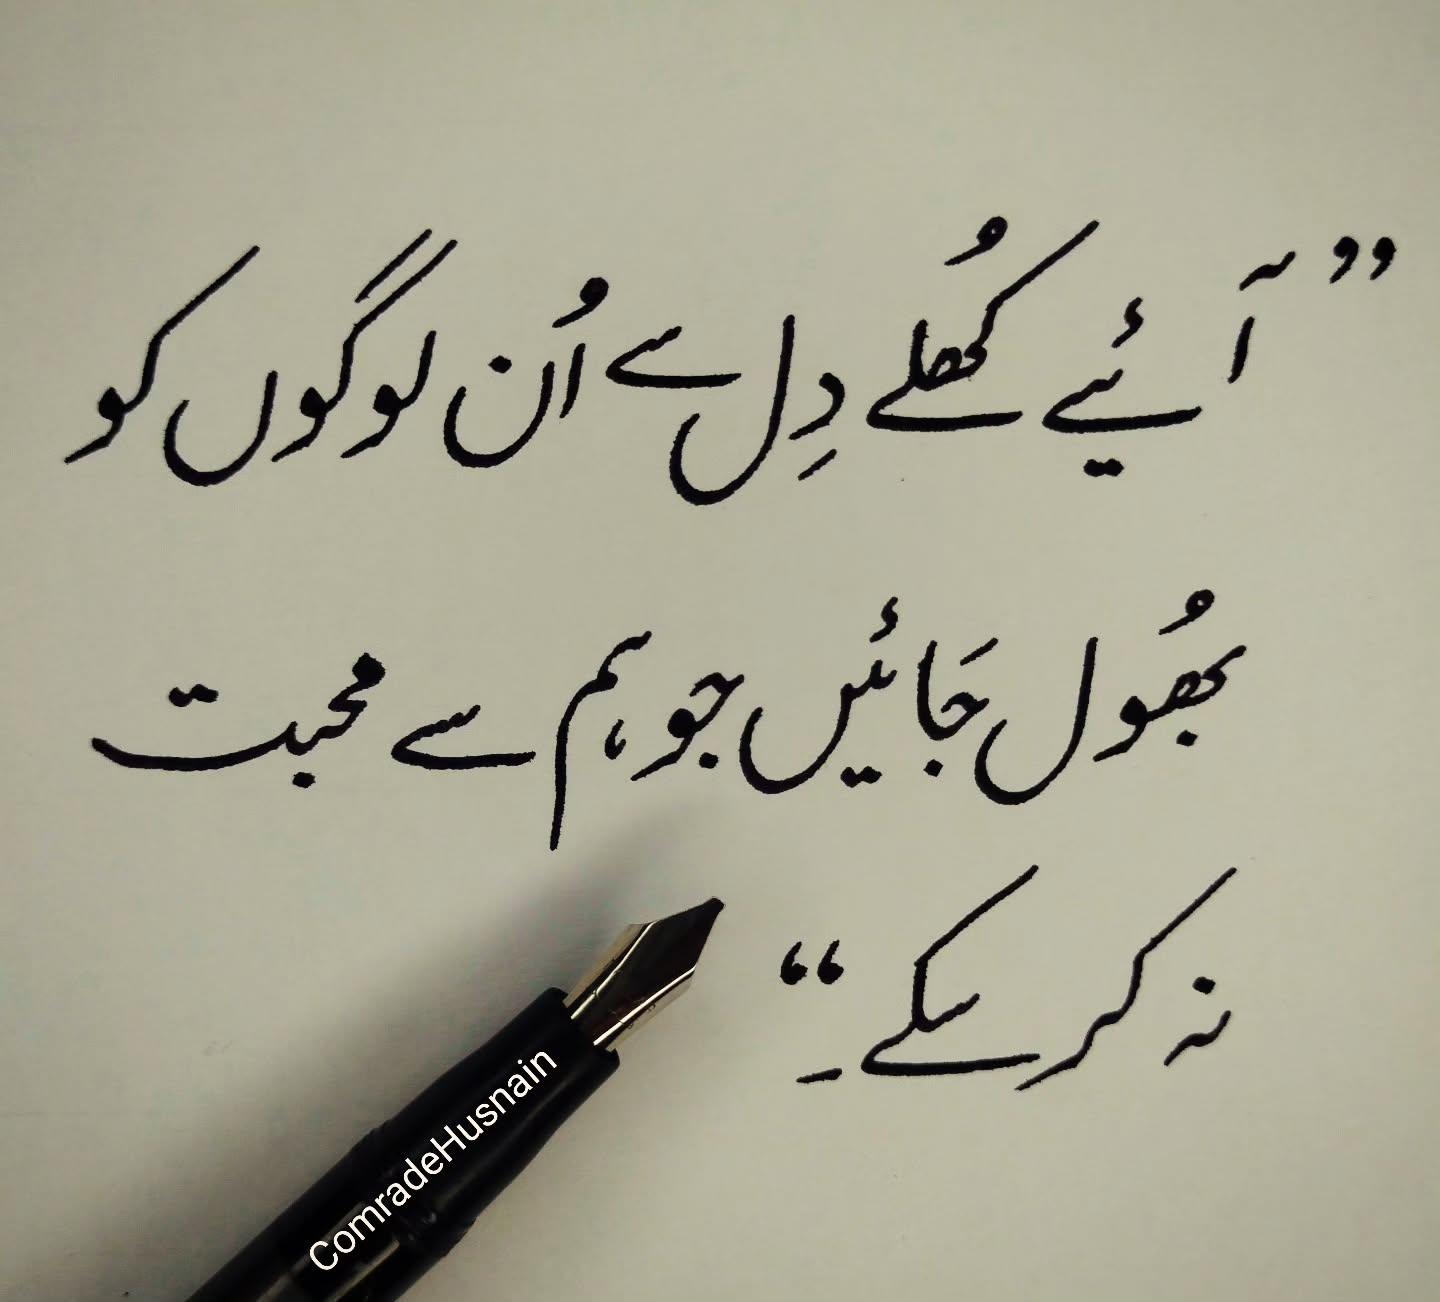 ”آئیے کُھلے دِل سے اُن لوگوں کو
بھُول جَائیں جو ہم سے محبت
نہ کر سکے۔“
ComradeHusnain